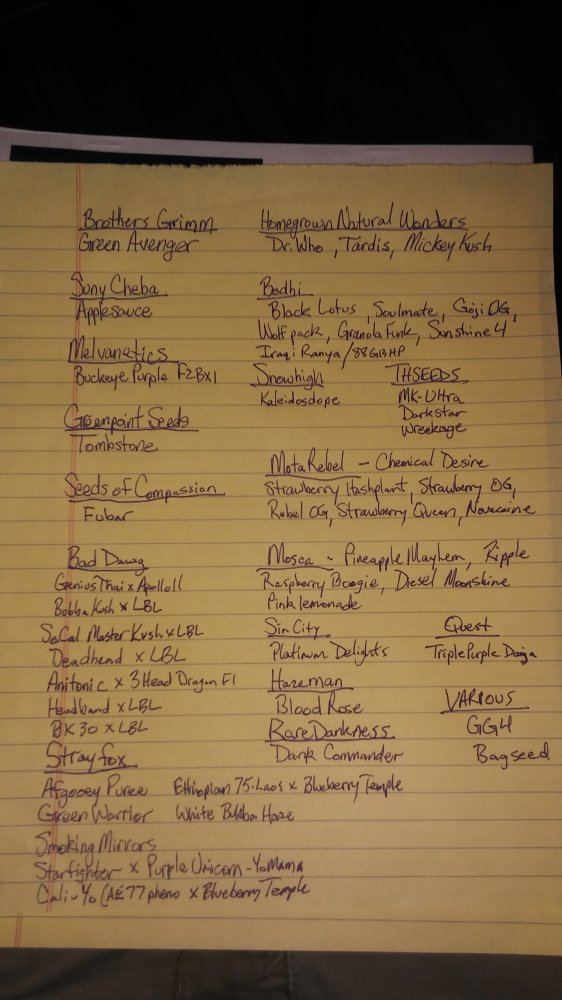 Brothers Grimm
Green Avenger
Suny Cheba
Applesauce
Melvanetics
Buckeye Purple F2BX1
Greenpoint Seeds
Tombstone
Seeds of Compassion
Fubar
Bad Dawg
Genius Thai x Apollo11
Bobba Kush x LBL
SoCal Master Kush x LBL
Deadhead x LBL
Anitonic x 3 Head Dragon F1
Headband x LBL
BK30 x LBL
Homegrown Natural Wonders
Dr. Who, Tardis, Mickey Kush
Bodhi
Black Lotus, Soulmate, Goji OG,
Wolfpack, Granola Funk, Sunshine 4
Iraqi Ranya / 88G13HP
Snowhigh
Kaleidosdope
THSEEDS
MK-Ultra
Darkstar
Wreekage
MotaRebel - Chemical Desire
Strawberry Hashplant, Strawberry OG,
Rebel OG, Strawberry Queen, Novacaine
Mosca - Pineapple Mayhem, Ripple
Raspberry Boogie, Diesel Moonshine
Pinklemonade
Sin City
Platinum Delights
Quest
Triple Purple Doja
Hazeman
Blood Rose
Rare Dankness
Dank Commander
VARIOUS
GG4
Bagseed
Strayfox
Afgooey Puree Ethiopian 75·Laos x Blueberry Temple
Green Warrior White Bubba Haze
Smoking Mirrors
Starfighter x Purple Unicorn - YoMama
Cali-Yo (AE77 pheno x Blueberry Temple